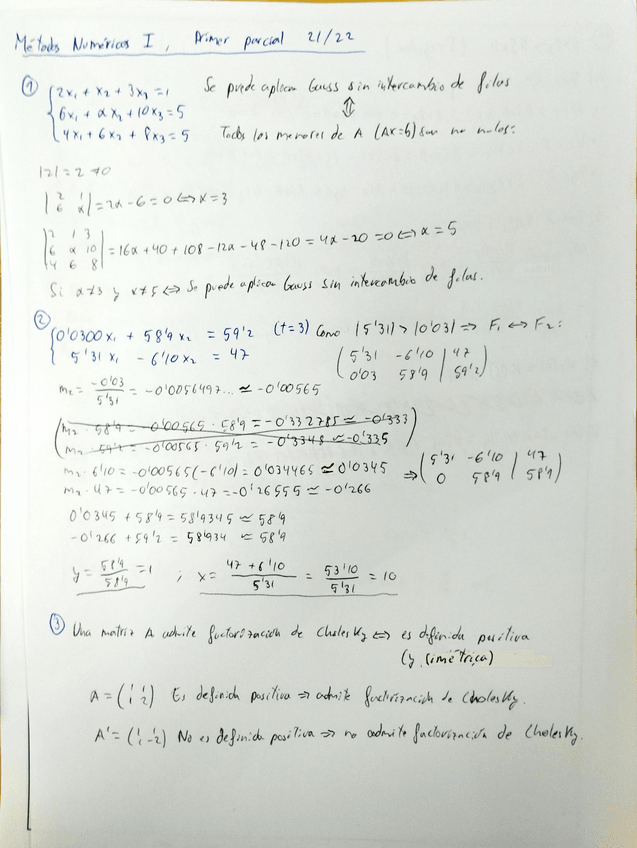 Métodos Numéricos I, Primer parcial 21/22
① { 2x₁ + x₂ + 3x₃ = 1 Se puede aplicar Gauss sin intercambio de filas
6x₁ + αx₂ + 10x₃ = 5 ⇕
4x₁ + 6x₂ + 8x₃ = 5 Todos los menores de A (Ax=b) son no nulos:
|2| = 2 ≠ 0
| 2 1 |
| 6 α | = 2α - 6 = 0 ⟺ α = 3
| 2 1 3 |
| 6 α 10 | = 16α + 40 + 108 - 12α - 48 - 120 = 4α - 20 = 0 ⟺ α = 5
| 4 6 8 |
Si α≠3 y α≠5 ⟺ Se puede aplicar Gauss sin intercambio de filas.
② { 0'0300 x₁ + 58'9 x₂ = 59'2 (t=3) Como |5'31| > |0'03| ⇒ F₁ ↔ F₂:
5'31 x₁ - 6'10 x₂ = 47 ( 5'31 -6'10 | 47
0'03 58'9 | 59'2 )
m₂ = -0'03/5'31 = -0'0056497... ≃ -0'00565
( m₂ · 58'9 = -0'00565 · 58'9 = -0'332785 ≃ -0'333
m₂ · 59'2 = -0'00565 · 59'2 = -0'3348 ≃ -0'335 )
m₂ · 6'10 = -0'00565(-6'10) = 0'034465 ≃ 0'0345 ⇒ ( 5'31 -6'10 | 47
m₂ · 47 = -0'00565 · 47 = -0'26555 ≃ -0'266 0 58'9 | 58'9 )
0'0345 + 58'9 = 58'9345 ≃ 58'9
-0'266 + 59'2 = 58'934 ≃ 58'9
y = 58'9/58'9 = 1 ; x = (47 + 6'10)/5'31 = 53'10/5'31 = 10
③ Una matriz A admite factorización de Cholesky ⟺ es definida positiva
(y simétrica)
A = (1 1; 1 2) Es definida positiva ⇒ admite factorización de Cholesky.
A' = (1 1; 1 -2) No es definida positiva ⇒ no admite factorización de Cholesky.